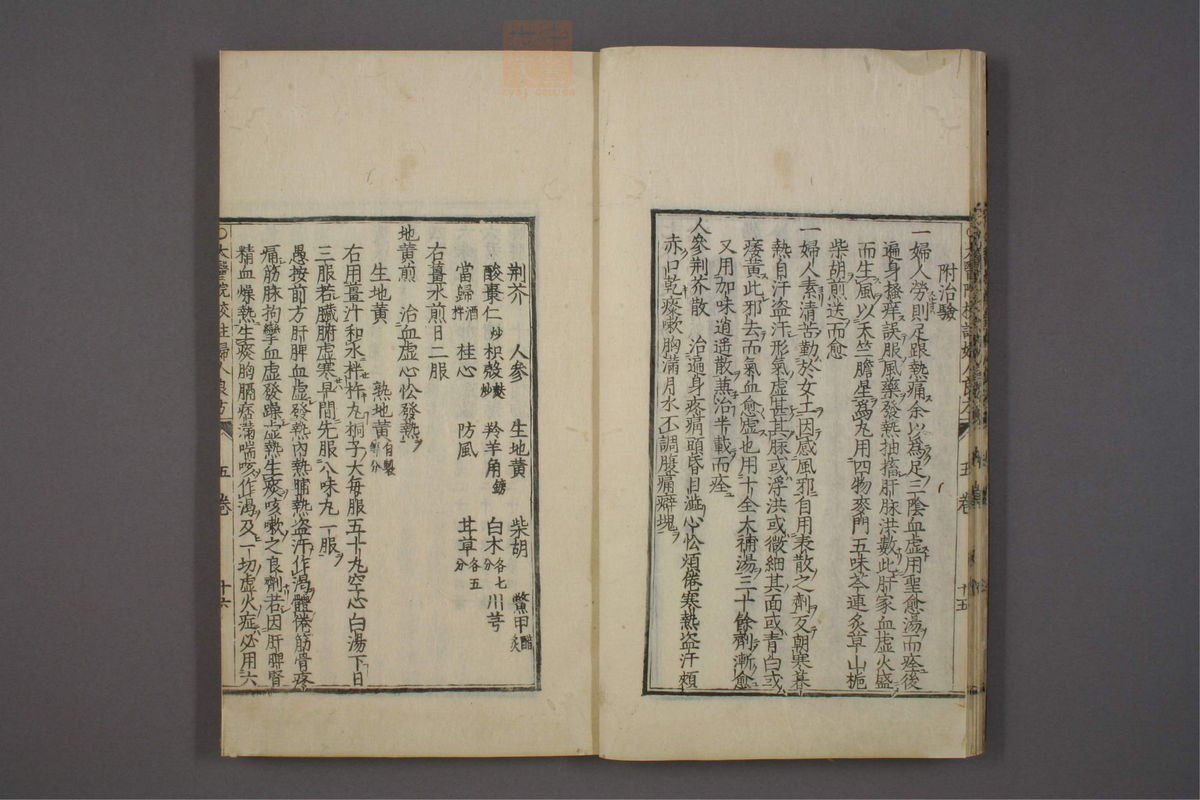 附治驗
一婦人勞則足跟熱痛余以為足三陰血虛用聖愈湯而痊後
遍身搔痒誤服風藥發熱抽搐肝脉洪數此肝家血虛火盛
而生風以天竺膽星為丸用四物麥門五味芩連炙草山梔
柴胡煎送而愈
一婦人素清苦勤於女工因感風邪自用表散之劑反朝寒暮
熱自汗盜汗形氣虛甚其脉或浮洪或微細其面或青白或
痿黃此邪去而氣血愈虛也用十全大補湯三十餘劑漸愈
又用加味逍遥散兼治半載而痊
人參荆芥散 治遍身疼痛頭昏目澁心忪煩倦寒熱盜汗頰
赤口乾痰嗽胸滿月水不調腹痛癖塊
荆芥 人參 生地黄 柴胡 鱉甲醋炙
酸棗仁炒 枳殻麩炒 羚羊角鎊 白木各七分 川芎
當歸酒拌 桂心 防風 甘草各五分
右薑水煎日二服
地黄煎 治血虛心忪發熱
生地黄 熟地黄自製等分
右用薑汁和水拌杵丸桐子大每服五十丸空心白湯下日
三服若臟腑虛寒早間先服八味丸一服
愚按前方肝脾血虛發熱內熱晡熱盗汗作渴體倦筋骨疼
痛筋脉拘攣血虛發躁虛熱生痰咳嗽之良劑若因肝脾腎
精血燥熱生痰胸膈痞滿喘咳作渴及一切虛火症必用六
太醫院校註婦人良方 五卷 十六